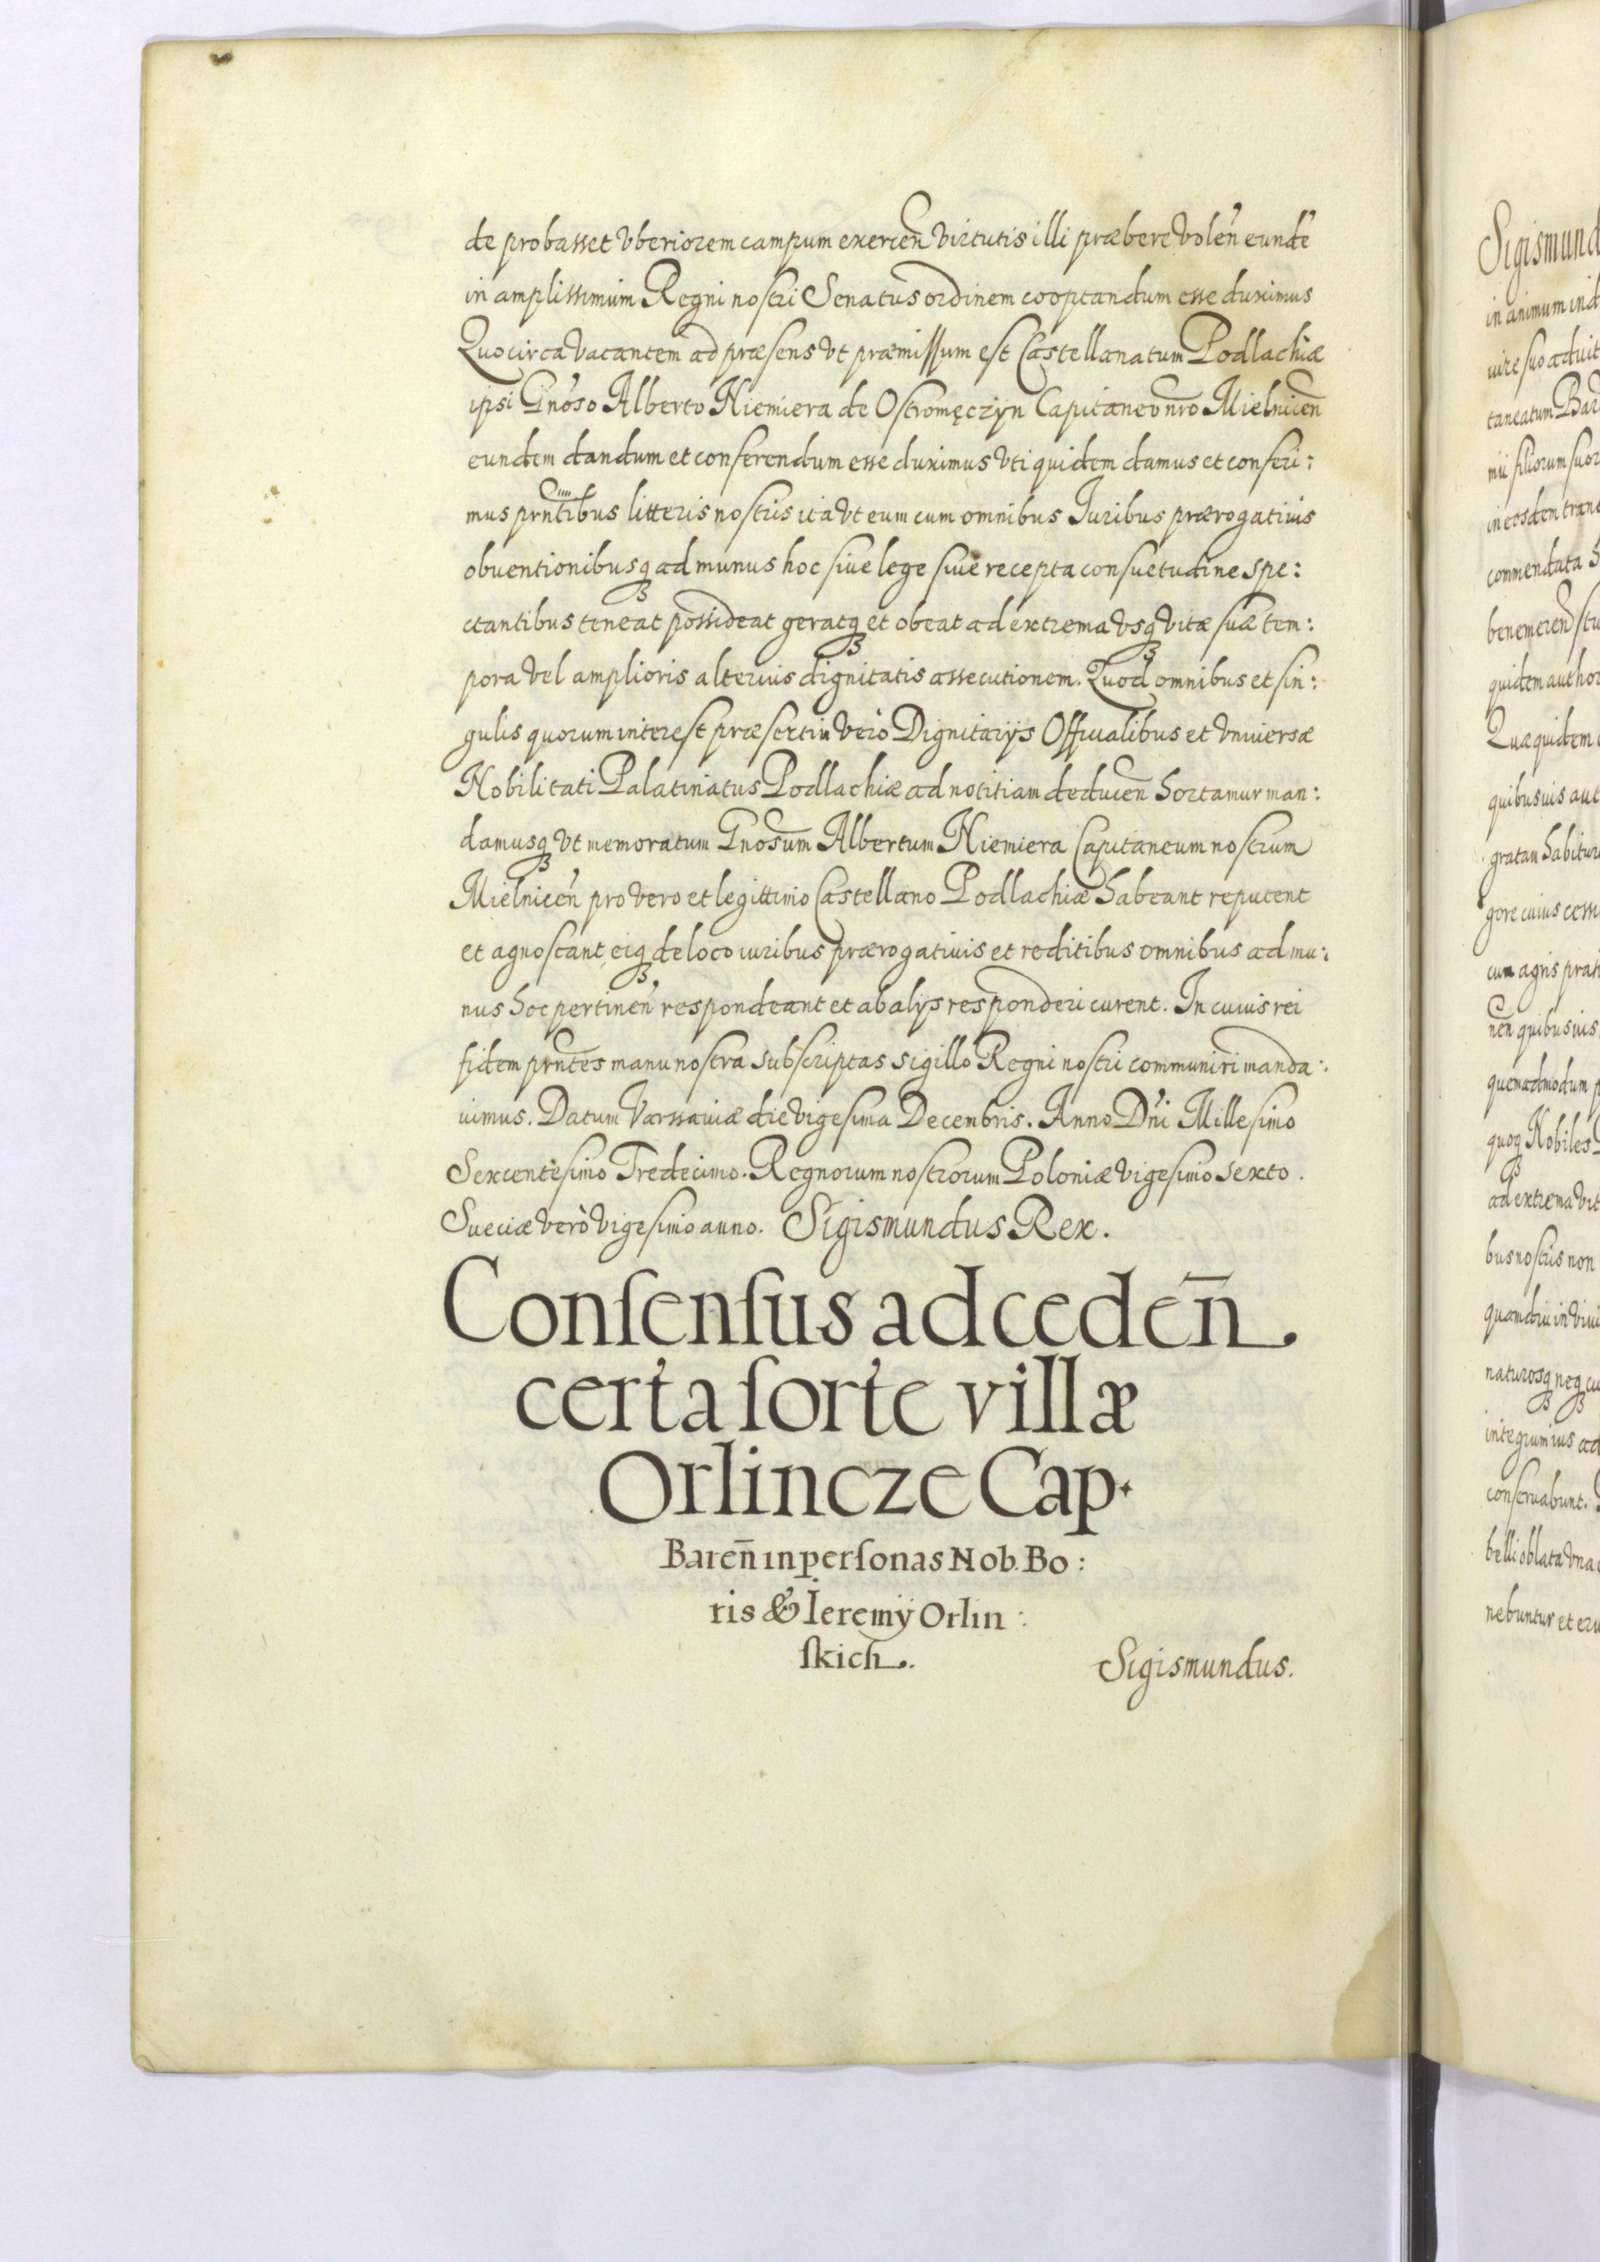 de probasset vberiorem campum exercen̄ virtutis illi præbere volen̄ eunde
in amplissimum Regni nostri Senatus ordinem cooptandum esse duximus
Quocirca vacantem ad præsens vt præmissum est Castellanatum Podlachiæ
ipsi Gnoso Alberto Niemiera de Ostromęczyn Capitaneo nro Mielnicen̄
eundem dandum et conferendum esse duximus vti quidem damus et conferi:
mus prntibus litteris nostris ita vt eum cum omnibus Iuribus prærogatiuis
obuentionibusqꝫ ad munus hoc siue lege siue recepta consuetudine spe:
ctantibus teneat possideat geratqꝫ et obeat ad extrema vsqꝫ vitæ suæ tem:
pora vel amplioris alterius dignitatis assecutionem. Quod omnibus et sin:
gulis quorum interest præsertim verò Dignitarijs Officialibus et vniuersæ
Nobilitati Palatinatus Podlachiæ ad notitiam deducen̄ hortamur man:
damusqꝫ vt memoratum Gnosum Albertum Niemiera Capitaneum nostrum
Mielnicen̄ pro vero et legittimo Castellano Podlachiæ habeant reputent
et agnoscant eiqꝫ de loco iuribus prærogatiuis et reditibus omnibus ad mu:
nus hoc pertinen̄ respondeant et ab alijs responderi curent. In cuius rei
fidem prntes manu nostra subscriptas sigillo Regni nostri communiri manda:
uimus. Datum Varssauiæ die vigesima Decembris. Anno Dn̄i Millesimo
Sexcentesimo Tredecimo. Regnorum nostrorum Poloniæ vigesimo sexto.
Sueciæ verò vigesimo anno. Sigismundus Rex.
Conſenſus ad ceden̄
certa ſorte villæ
Orlincze Cap.
Baren̄ in perſonas Nob. Bo:
ris & Ieremij Orlin:
ſkich.
Sigismundus.
Sigismund
in animum ind
uire suo aduit
taneatum Bar
mii filiorum suor
in eosdem trans
commendata
benemeren̄ stu
quidem author
Quæ quidem
quibusuis aut
gratan habitur
gore cuius
cum agris prat
nen̄ quibusuis
quemadmodum p
quoqꝫ Nobiles
ad extrema vit
bus nostris non
quamdiu in viui
naturosqꝫ neqꝫ cu
integrum ius ad
conseruabunt.
belli oblata vna
nebuntur et